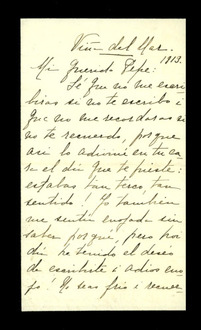 Viña del Mar.
1913.
Mi Querido Pepe:
Sé que no me escri
birás si no te escribo i
que no me recordarás si
no te recuerdo, porque
asi lo adiviné en tu ca
el día que te
estabas tan terco tan
sentido! Yo tambien
me sentí enojada sin
saber porqué, pero hoi
día he tenido el deseo
de escribirte i adios eno
jo! No seas frio i